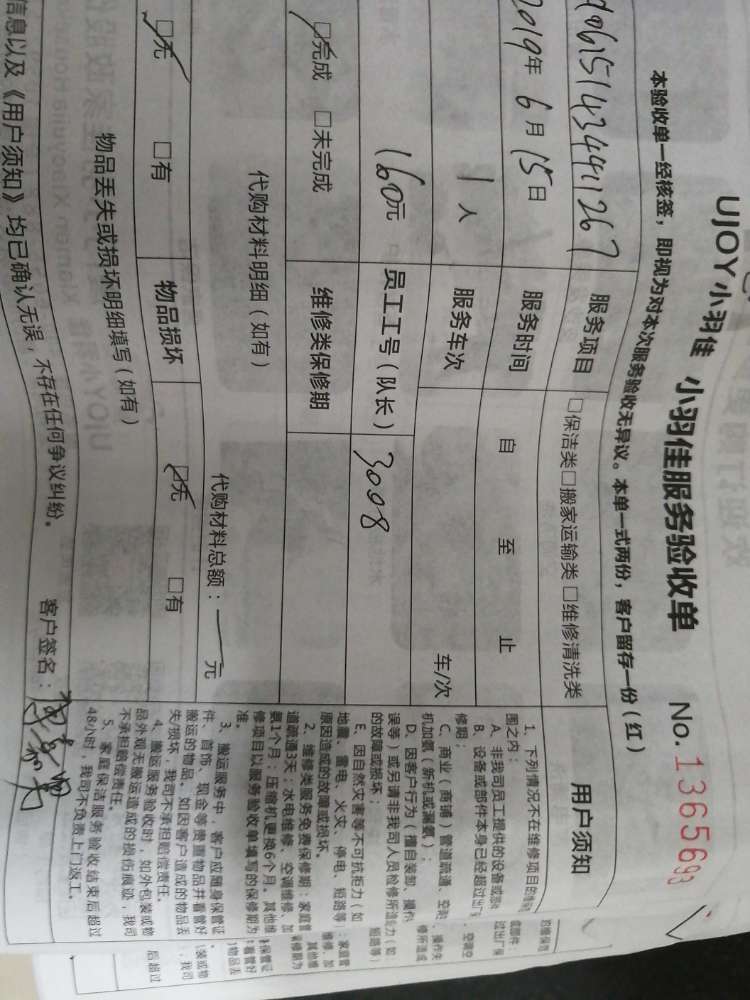 UJOY小羽佳 小羽佳服务验收单 No. 1365693
本验收单一经核签，即视为对本次服务验收无异议。本单一式两份，客户留存一份（红）
服务项目 □保洁类□搬家运输类□维修清洗类
2019年6月15日 服务时间 自 至 止
1人 服务车次 车/次
160元 员工工号（队长） 3008
□完成 □未完成 维修类保修期
代购材料明细（如有） 代购材料总额：—元
□无 □有 物品损坏 □无 □有
物品丢失或损坏明细填写（如有）
信息以及《用户须知》均已确认无误，不存在任何争议纠纷。 客户签名：
用户须知
1、下列情况不在维修项目的
围之内：
A、非我司员工提供的设备或
B、设备或部件本身已经超过出厂
修期；
C、商业（商铺）管道疏通、空调
机加氨（新机或漏氨）；
D、因客户行为（擅自装卸、操作
误等）或另请非我司人员检修所造
的故障或损坏；
E、因自然灾害等不可抗力（如
地震、雷电、火灾、停电、短路等
原因造成的故障或损坏。
2、维修类服务免费保修期：家庭管
道疏通3天；水电维修、空调维修、加
氨1个月；压缩机更换6个月。其他维
修项目以服务验收单填写的保修期为
准。
3、搬运服务中，客户应随身保管证
件、首饰、现金等贵重物品并看管好
搬运的物品。如因客户造成的物品丢
失/损坏，我司不承担赔偿责任。
4、搬运服务验收时，如外包装或物
品外观无搬运造成的损伤痕迹，我司
不承担赔偿责任。
5、家庭保洁服务验收结束后超过
48小时，我司不负责上门返工。